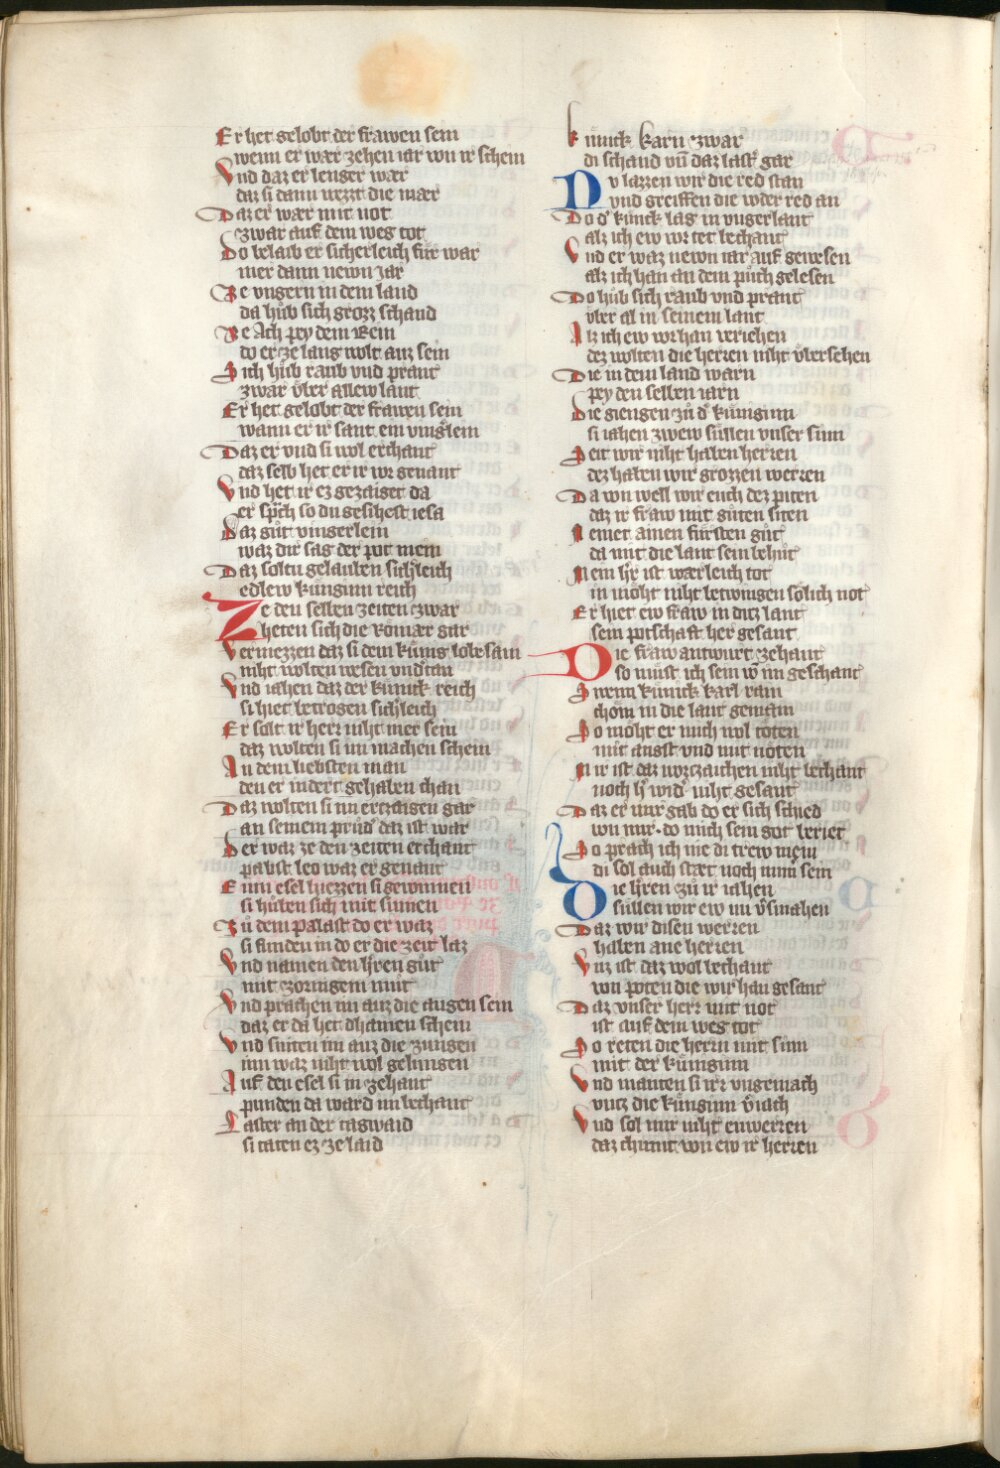 Er het gelobt der frawen sein
wenn er wær zehen iar von ir schein
Vnd daz er lenger wær
daz si dann wezzt die mær
Daz er wær mit not
zwar auf dem weg tot
Do belaib er sicherleich für war
mer dann newn Jar
Ze vngern in dem land
da hůb sich grozz schand
Ze Ach pey dem Rein
do er ze lang wolt auz sein
Sich hůb raub vnd prant
zwar vͤber allew lant
Er het gelobt der frawen sein
wann er ir sant ein vingͤlein
Daz er vnd si wol erchant
daz selb het er ir vor genant
Vnd het ir ez gezaiget da
er sp̄ch so du gesihest iesa
Daz gůt vingerlein
waz dir sag der pot mein
Daz soltu gelauben sich̓leich
edlew künginn reich
Ze den selben zeiten zwar
heten sich die Romær gar
Vermezzen daz si dem küng lobesam
niht wolten wesen vndertan
Vnd iahen daz der künick reich
si hiet betrogen sich̓leich
Er solt ir herr niht mer sein
daz wolten si im machen schein
An dem liebsten man
den er indert gehaben chan
Daz wolten si im erczaigen gar
an seinem průd̓ daz ist war
Der waz ze den zeiten erchant
pabst leo waz er genant
Einn esel hiezzen si gewinnen
si hůben sich mit sinnen
Zů dem palast do er waz
si funden in do er die zeit laz
Vnd namen den h̓ren gůt
mit zornigem můt
Vnd prachen im auz die augen sein
daz er da het dhainen schein
Vnd sniten im auz die zungen
im waz niht wol gelungen
Auf den esel si in zehant
punden da ward im bechant
Laster an der tagwaid
si taten ez ze laid
künick karn zwar
di schand vn̄ daz last̓ gar
Nv lazzen wir die red stan
vnd greiffen die wider red an
Do d̓ künck lag in vngerlant
alz ich ew vor tet bechant
Vnd er waz newn iar auf gewesen
alz ich han an dem půch gelesen
Do hůb sich raub vnd prant
vͤber al in seinem lant
Alz ich ew vor han veriehen
dez wolten die herren niht vͤbersehen
Die in dem land warn
pey den selben iarn
Die giengen zů d̓ künginn
si iahen zwew süllen vnser sinn
Seit wir niht haben herren
dez haben wir grozzen werren
Da von well wir euch dez piten
daz ir fraw mit gůten siten
Nemet ainen fürsten gůt
da mit die lant sein behůt
Mein h̓r ist wærleich tot
in möht niht betwingen sölich not
Er hiet ew fraw in ditz lant
sein potschaft her gesant
Die fraw antwurt zehant
so můst ich sein vō im geschant
Swenn künick karl kam
chöm in die lant gemain
So möht er mich wol töten
mit angst vnd mit nöten
Mir ist daz worczaichen niht bechant
noch h̓ wid̓ niht gesant
Daz er mir gab do er sich schied
von mir do mich sein got beriet
So prach ich nie di trew mein
di sol auch stæt noch nimm sein
Die h̓ren zů ir iahen
süllen wir ew nu v̓smahen
Daz wir disen werren
haben ane herren
Vnz ist daz wol bechant
von poten die wir han gesant
Daz vnser herr mit not
ist auf dem weg tot
So reten die herrn mit sinn
mit der künginn
Vnd manten si irr vngemach
vntz die künginn v̓iach
Vnd sol mir niht enwerren
daz chumt von ew ir herren